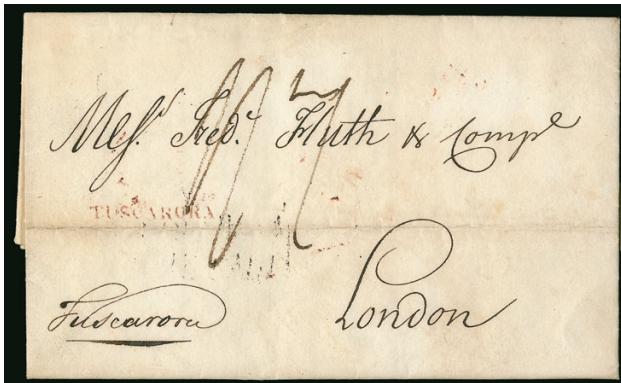 Messrs. Fredk. Huth & Compe
TUSCARORA
Tuscarora
London